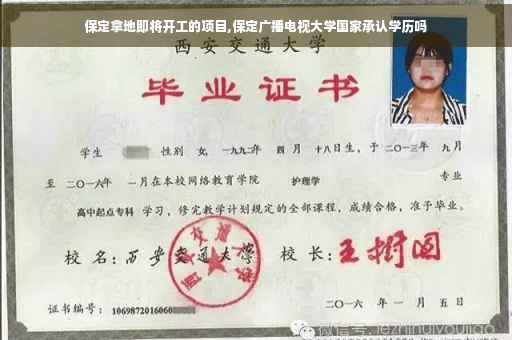 保定拿地即将开工的项目,保定广播电视大学国家承认学历吗
西安交通大学
毕业证书
学生 性别 女, 一九九二年 四月 十八日生, 于二〇一三年 九月
至 二〇一六年 一月在本校网络教育学院 护理学 专业
高中起点专科 学习, 修完教学计划规定的全部课程, 成绩合格, 准予毕业。
校名: 西安交通大学 校长: 王树国
西安交通大学
证书编号: 1069872016060
二〇一六年 一月 五日
微信号: jezhihuiyoujiao